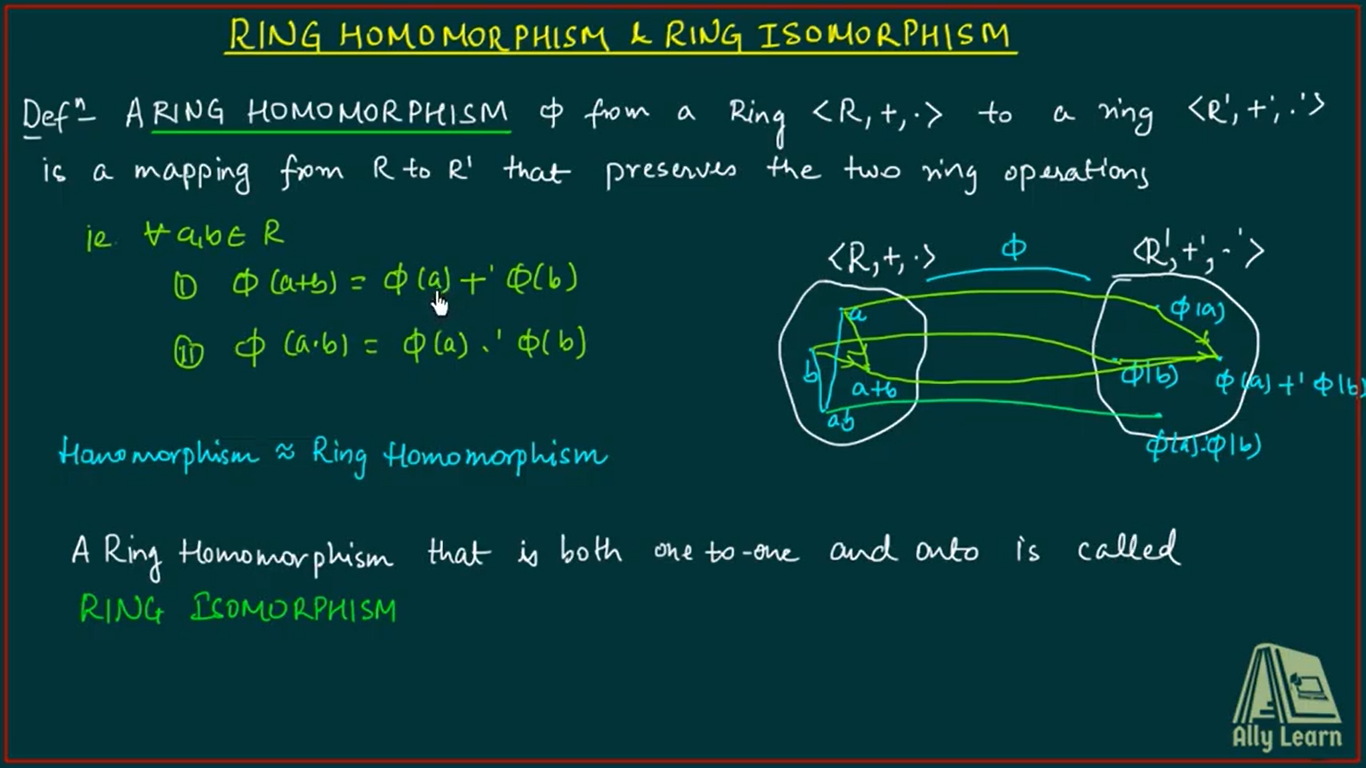 RING HOMOMORPHISM & RING ISOMORPHISM
Defⁿ- A RING HOMOMORPHISM Φ from a Ring <R, +, ·> to a ring <R', +', ·'>
is a mapping from R to R' that preserves the two ring operations
ie. ∀ a,b ∈ R
(I) Φ (a+b) = Φ(a) +' Φ(b)
(II) Φ (a·b) = Φ(a) ·' Φ(b)
<R, +, ·> Φ <R', +', ·'>
a Φ(a)
b a+b Φ(b) Φ(a) +' Φ(b)
ab Φ(a)·'Φ(b)
Homomorphism ≈ Ring Homomorphism
A Ring Homomorphism that is both one-to-one and onto is called
RING ISOMORPHISM
Ally Learn